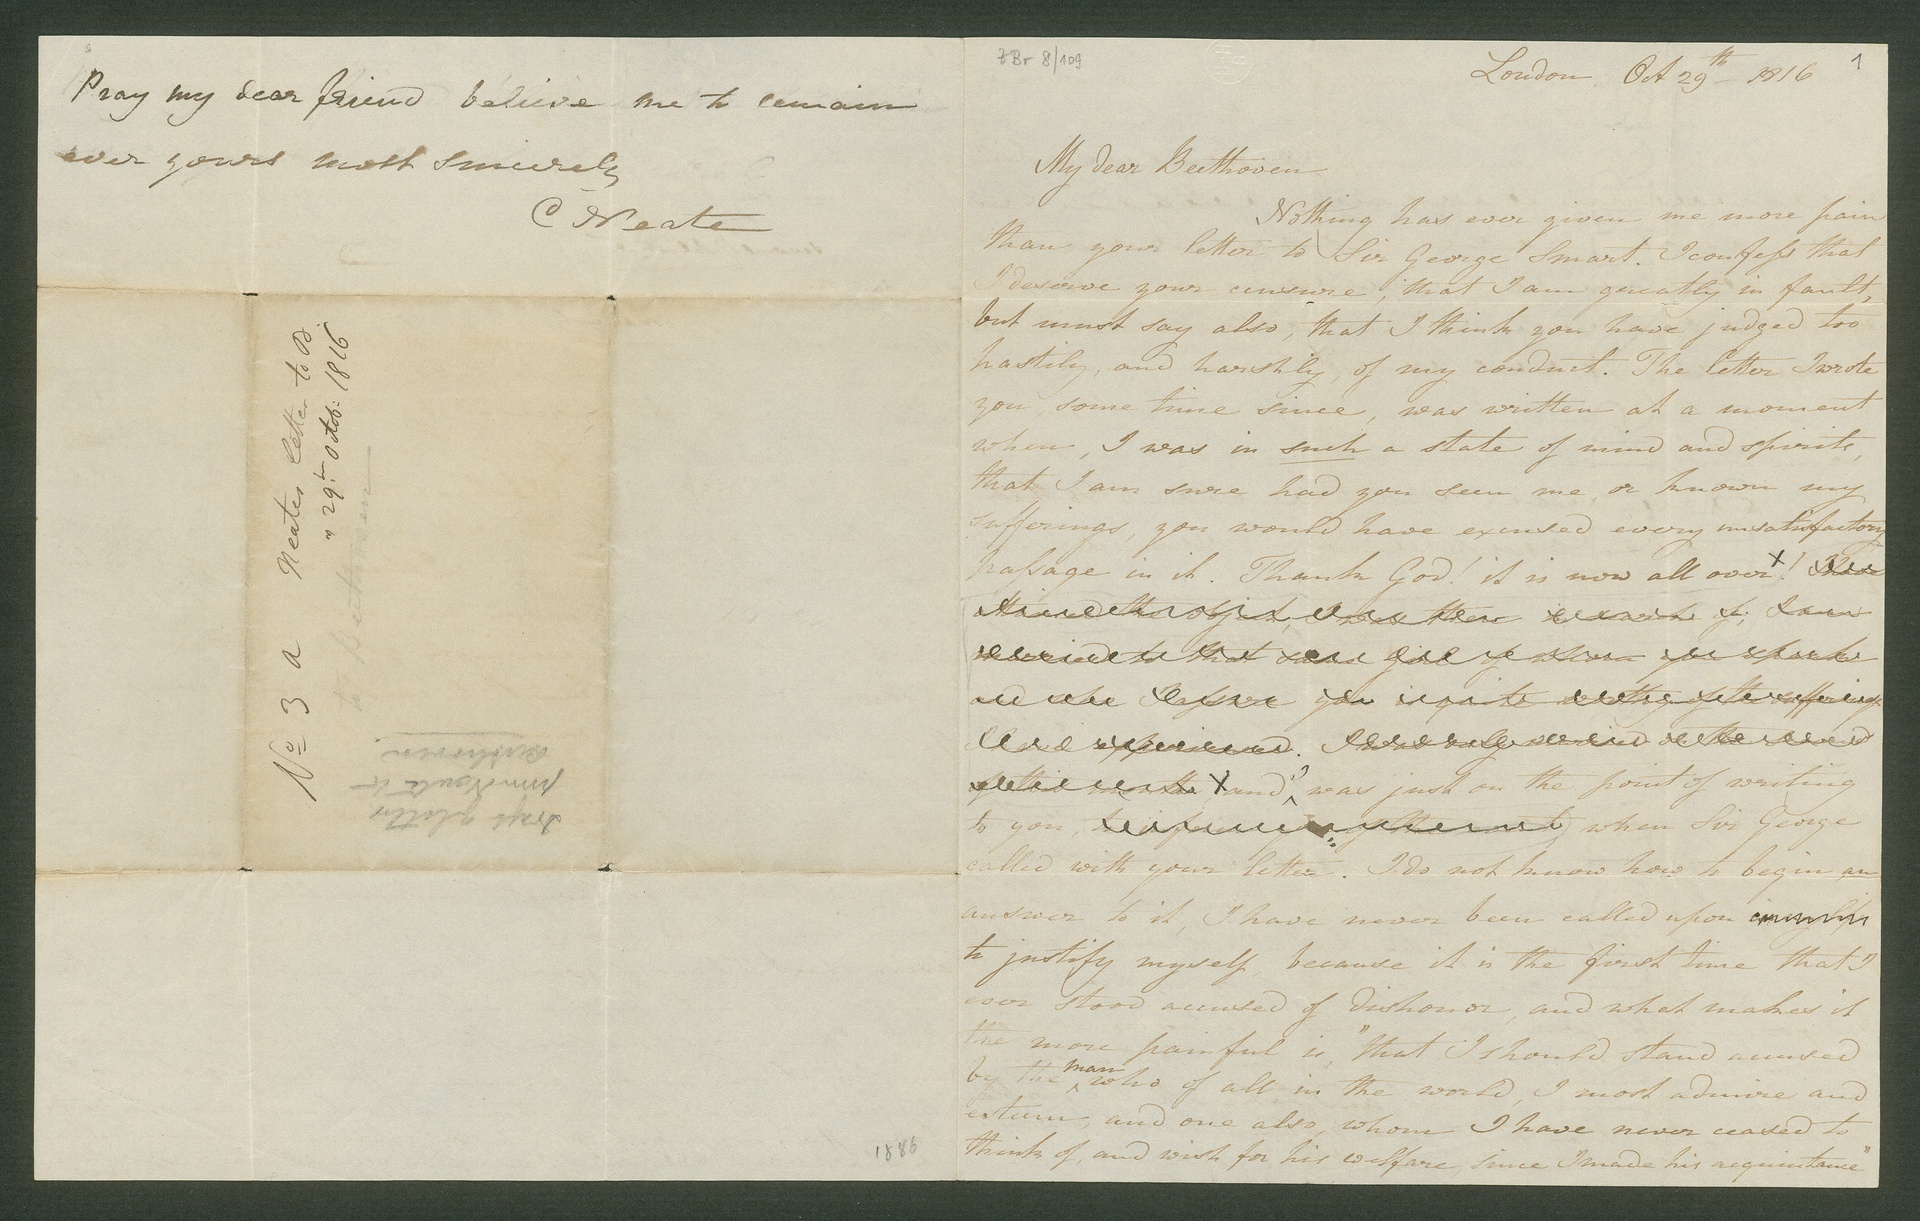 Pray my dear friend believe me to remain
ever yours most sincerely
C Neate
No 3 a Neates letter to B.
" 29th Octob: 1816
to Beethoven
Draft of letter
from Neate to
Beethoven.
1886
ZBr 8/109
1
London, Oct 29th 1816
My dear Beethoven
Nothing has ever given me more pain
than your letter to Sir George Smart. I confess that
I deserve your censure, that I am greatly in fault,
but must say also, that I think you have judged too
hastily, and harshly, of my conduct. The letter I wrote
you some time since, was written at a moment
when, I was in such a state of mind and spirits,
that I am sure had you seen me or known my
sufferings, you would have excused every unsatisfactory
passage in it. Thank God! it is now all over x! I have
attained the object, I was then in search of, I am
married to that same girl of whom you
and who I assure you is quite worthy of the sufferings
I have experienced. I
of this month X, and I was just on the point of writing
to you, when Sir George
called with your letter. I do not know how to begin an
answer to it, I have never been called upon in my life
to justify myself, because it is the first time that I
ever stood accused of dishonor, and what makes it
the more painful is, "that I should stand accused
by the man who of all in the world, I most admire and
esteem, and one also, whom I have never ceased to
think of, and wish for his welfare, since I made his acquaintance"